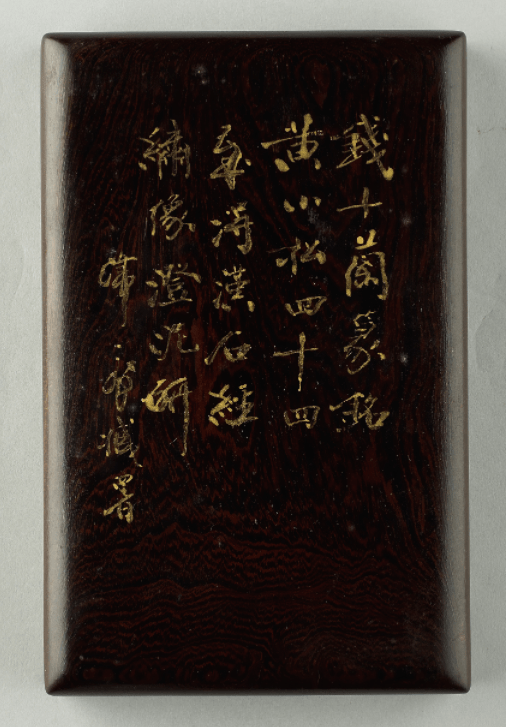 錢十蘭篆銘
黃小松四十四
歲得漢石經
繡像澄泥研
藏署